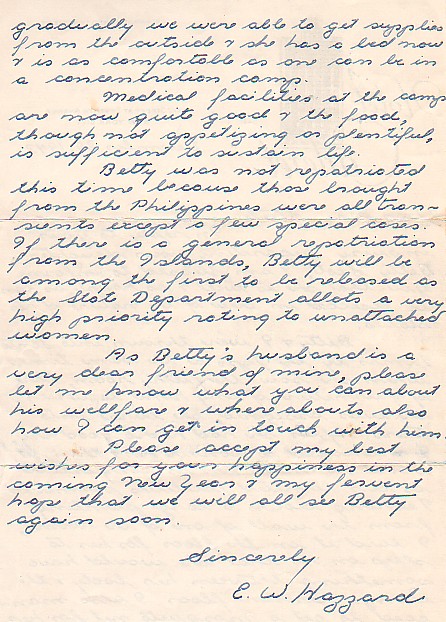 gradually we were able to get supplies
from the outside & she has a bed now
& is as comfortable as one can be in
a concentration camp.
Medical facilities at the camp
are now quite good & the food,
though not appetizing or plentiful,
is sufficient to sustain life.
Betty was not repatriated
this time because those brought
from the Philippines were all tran-
sients except a few special cases.
If there is a general repatriation
from the Islands, Betty will be
among the first to be released as
the State Department allots a very
high priority rating to unattached
women.
As Betty's husband is a
very dear friend of mine, please
let me know what you can about
his wellfare & where abouts also
how I can get in touch with him.
Please accept my best
wishes for your happiness in the
coming New Year & my fervent
hope that we will all see Betty
again soon.
Sincerely
E. W. Hazzard